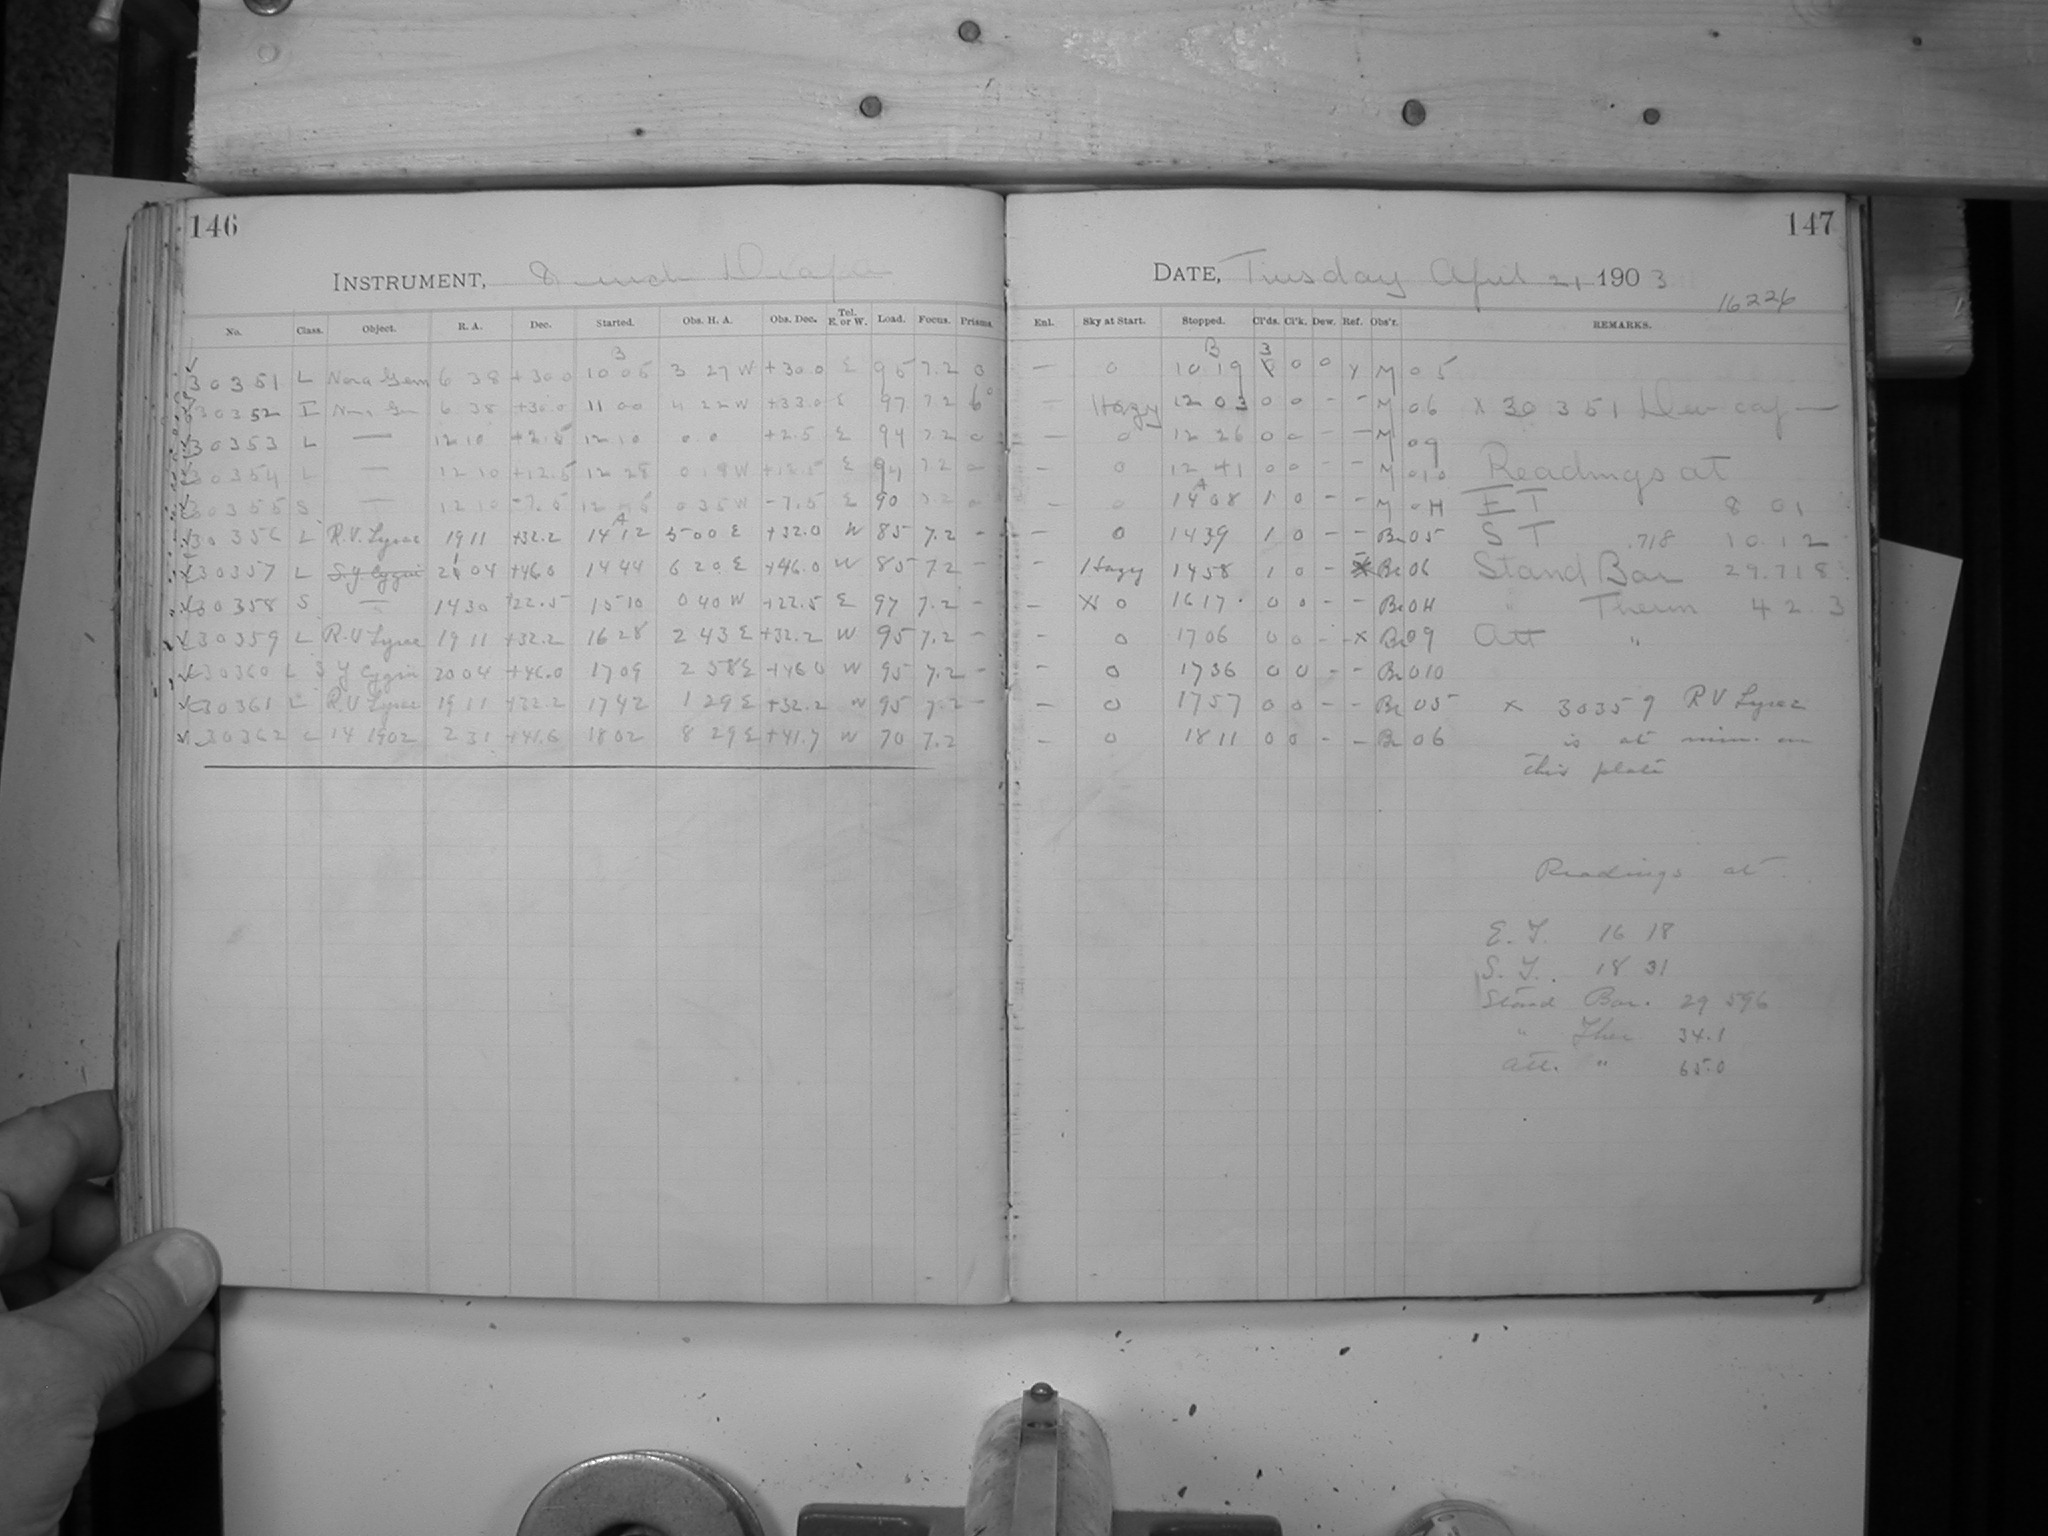 146
INSTRUMENT, 8 inch Draper
No. Class. Object. R. A. Dec. Started. Obs. H. A. Obs. Dec. Tel. E. or W. Load. Focus. Prisms.
30351 L Nova Gem 6 38 +30.0 10 05 3 27 W +30.0 E 95 7.2 0
30352 I Nova Gem 6 38 +30.0 11 00 4 22 W +33.0 E 97 7.2 6°
30353 L — 12 10 +2.5 12 10 0.0 +2.5 E 94 7.2 0
30354 L — 12 10 +12.5 12 28 0 18 W +12.5 E 94 7.2 0
30355 S — 12 10 -7.5 12 45 0 35 W -7.5 E 90 7.2 0
30356 L R.V. Lyrae 19 11 +32.2 14 12 5 00 E +32.0 W 85 7.2 -
30357 L S.Y. Cygni 20 04 +46.0 14 44 6 20 E +46.0 W 85 7.2 -
30358 S — 14 30 +22.5 15 10 0 40 W +22.5 E 97 7.2 -
30359 L R.V Lyrae 19 11 +32.2 16 28 2 43 E +32.2 W 95 7.2 -
30360 L S Y Cygni 20 04 +46.0 17 09 2 58 E +46.0 W 95 7.2 -
30361 L R.V Lyrae 19 11 +32.2 17 42 1 29 E +32.2 W 95 7.2 -
30362 L 14 1902 2 31 +41.6 18 02 8 29 E +41.7 W 70 7.2
147
DATE, Tuesday April 21, 1903
16226
Enl. Sky at Start. Stopped. Cl'ds. Cl'k. Dew. Ref. Obs'r. REMARKS.
— 0 10 19 3 0 0 Y M 05
— Hazy 12 03 0 0 - - M 06 X 30351 Dew cap —
— 0 12 26 0 0 - - M 09
— 0 12 41 0 0 - - M 010 Readings at
0 14 08 1 0 - - M 0H E T 8 01
— 0 14 39 1 0 - - Br 05 S T .718 10.12
- Hazy 14 58 1 0 - Br 06 Stand Bar 29.718
— 0 16 17 0 0 - - Br 0H " Therm 42.3
- 0 17 06 0 0 - - X Br 09 Att "
- 0 17 36 0 0 - - Br 010
— 0 17 57 0 0 - - Br 05 X 30359 R V Lyrae
— 0 18 11 0 0 - - Br 06 is at min. on
this plate
Readings at
E. T. 16 18
S. T. 18 31
Stand Bar. 29 596
" Ther 34.1
Att. " 65.0